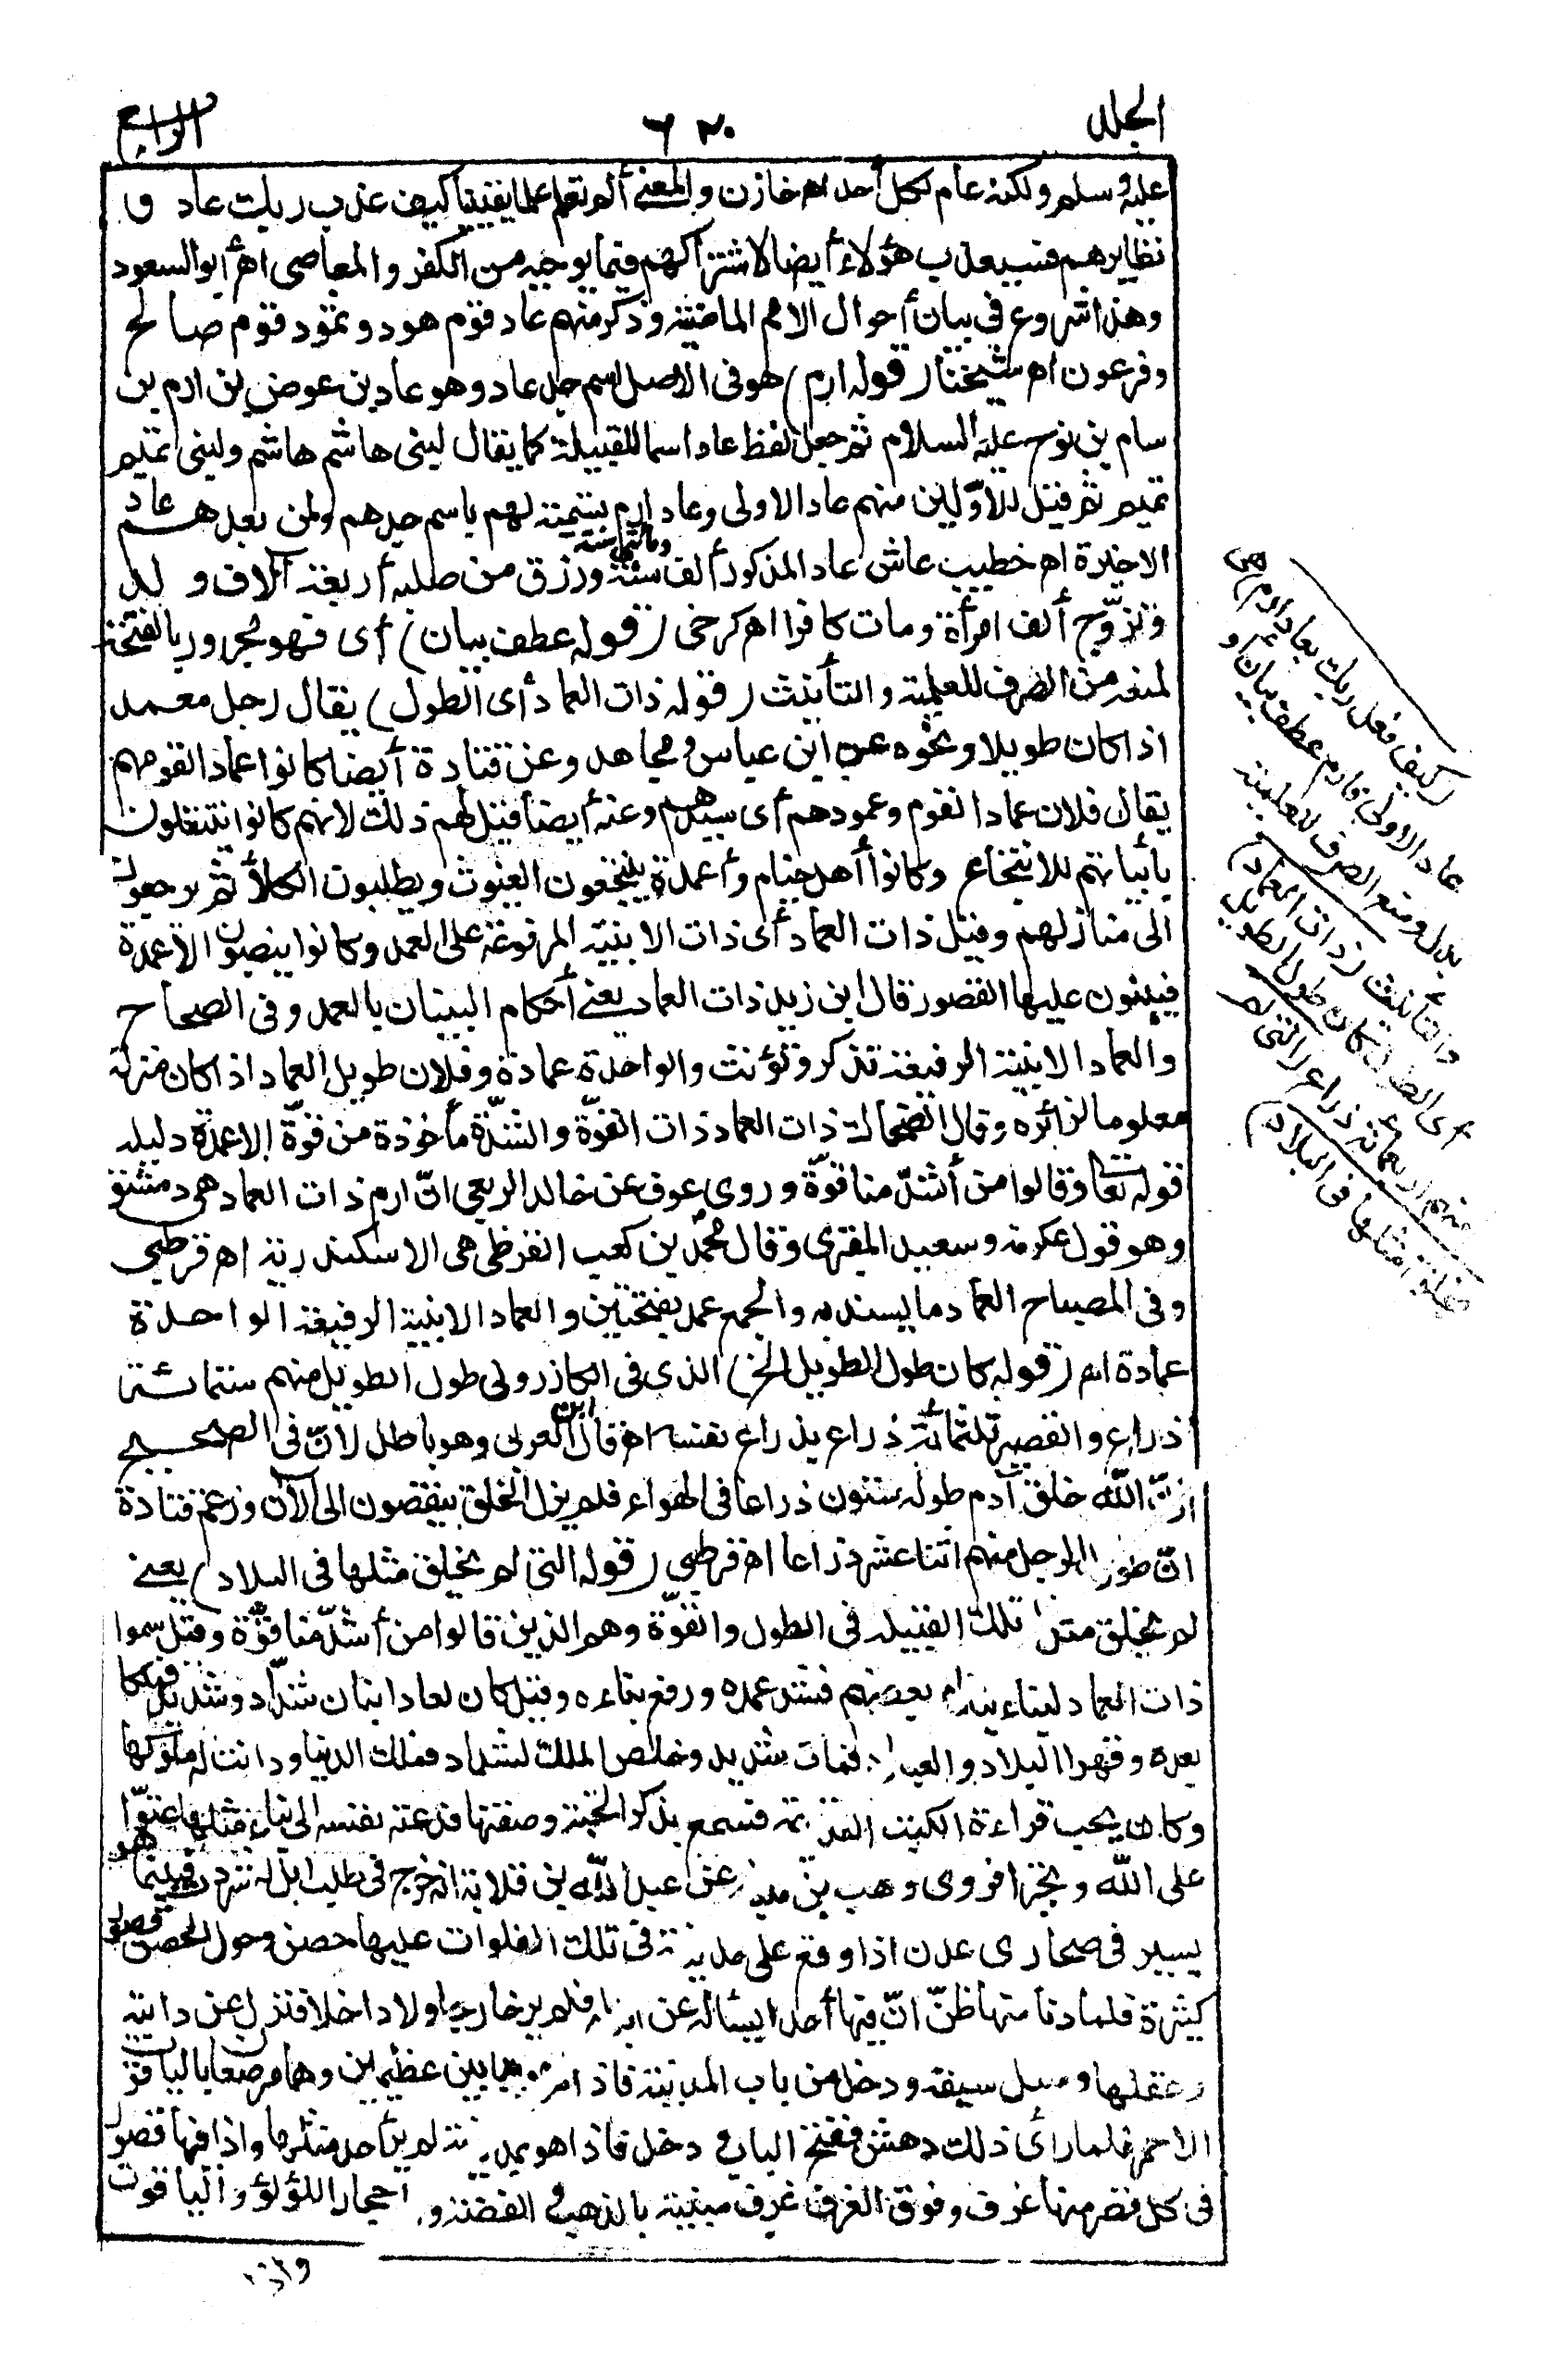 الجلد
٦٢٠
الرابع
عليه وسلم ولكنه عام لكل أحد اه خازن والمعنى ألم تعلم علما يقينيا كيف عذب ربك عاد و
نظايرهم فسيعذب هؤلاء أيضا لاشتراكهم فيما يوجبه من الكفر والمعاصى اه أبو السعود
وهذا شروع فى بيان أحوال الامم الماضية وذكر منهم عاد قوم هود وثمود قوم صالح
وفرعون اه شيخنا (قوله ارم) هو فى الاصل اسم جد عاد وهو عاد بن عوص بن ارم بن
سام بن نوح عليه السلام ثم جعل لفظ عاد اسما للقبيلة كما يقال لبنى هاشم هاشم ولبنى تميم
تميم ثم قيل للاوّلين منهم عاد الاولى وعاد ارم تسمية لهم باسم جدهم ولمن بعدهم عاد
الاخيرة اه خطيب عاش عاد المذكور ألف سنة ومائتى سنة ورزق من صلبه أربعة آلاف ولد
وتزوّج ألف امرأة ومات كافرا اه كرخى (قوله عطف بيان) أى فهو مجرور بالفتحة
لمنعه من الصرف للعلمية والتأنيث (قوله ذات العماد أى الطول) يقال رجل معمد
اذا كان طويلا ونحوه عن ابن عباس ومجاهد وعن قتادة أيضا كانوا عمادا لقومهم
يقال فلان عماد القوم وعمودهم أى سيدهم وعنه أيضا قيل لهم ذلك لانهم كانوا ينتقلون
بأبياتهم للانتجاع وكانوا أهل خيام وأعمدة ينتجعون الغيوث ويطلبون الكلأ ثم يرجعون
الى منازلهم وقيل ذات العماد أى ذات الابنية المرفوعة على العمد وكانوا ينصبون الاعمدة
فيبنون عليها القصور قال ابن زيد ذات العماد يعنى أحكام البنيان بالعمد وفى الصحاح
والعماد الابنية الرفيعة تذكر وتؤنث والواحدة عمادة وفلان طويل العماد اذا كان منزله
معلوما لزائره وقال الضحاك ذات العماد ذات القوّة والشدّة مأخوذة من قوّة الاعمدة دليله
قوله تعالى وقالوا من أشدّ منا قوّة وروى عوف عن خالد الربعى انّ ارم ذات العماد هى دمشق
وهو قول عكرمة وسعيد المقبرى وقال محمد بن كعب القرظى هى الاسكندرية اه قرطبى
وفى المصباح العماد ما يسند به والجمع عمد بفتحتين والعماد الابنية الرفيعة الواحدة
عمادة اه (قوله كان طول الطويل الخ) الذى فى الكازرونى طول الطويل منهم ستمائة
ذراع والقصير ثلثمائة ذراع بذراع نفسه اه قال ابن العربى وهو باطل لانّ فى الصحيح
انّ الله خلق آدم طوله ستون ذراعا فى الهواء فلم يزل الخلق ينقصون الى الآن وزعم قتادة
انّ طول الرجل منهم اثنا عشر ذراعا اه قرطبى (قوله التى لم يخلق مثلها فى البلاد) يعنى
لم يخلق مثل تلك القبيلة فى الطول والقوّة وهم الذين قالوا من أشدّ منا قوّة وقيل سموا
ذات العماد لبناء بناه بعضهم فشد عمده ورفع بناءه وقيل كان لعاد ابنان شدّاد وشديد فملكا
بعده وقهرا البلاد والعباد فمات شديد وخلص الملك لشداد فملك الدنيا ودانت له ملوكها
وكان يحب قراءة الكتب القديمة فسمع بذكر الجنة وصفتها فدعته نفسه الى بناء مثلها عتوّا
على الله وتجبرا فروى وهب بن منبه عن عبد الله بن قلابة انه خرج فى طلب ابل له شردت فبينما هو
يسير فى صحارى عدن اذا وقع على مدينة فى تلك الفلوات عليها حصن وحول الحصن قصور
كثيرة فلما دنا منها ظنّ انّ فيها أحدا يسأله عن ابله فلم ير خارجا ولا داخلا فنزل عن دابته
وعقلها وسل سيفه ودخل من باب المدينة فاذا هو ببابين عظيمين وهما مرصعان بالياقوت
الاحمر فلما رأى ذلك دهش ففتح الباب ودخل فاذا هو بمدينة لم ير أحد مثلها واذا فيها قصور
فى كل قصر منها غرف وفوق الغرف غرف مبنية بالذهب والفضة و احجار اللؤلؤ والياقوت
واذا
(كيف فعل ربك بعاد ارم) هى
عاد الاولى فارم عطف بيان أو
بدل ومنع الصرف للعلمية
والتأنيث (ذات العماد)
أى الطول كان طول الطويل
منهم أربعمائة ذراع (التى لم
يخلق مثلها فى البلاد)